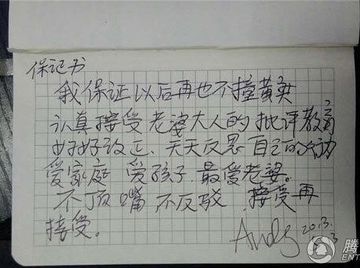 保证书
我保证以后再也不撞黄奕
认真接受老婆大人的批评教育
好好改正.天天反思自己的行为
爱家庭 爱孩子.最爱老婆.
不顶嘴 不反驳 接受再
接受。
Andy
2013.
腾
ENT